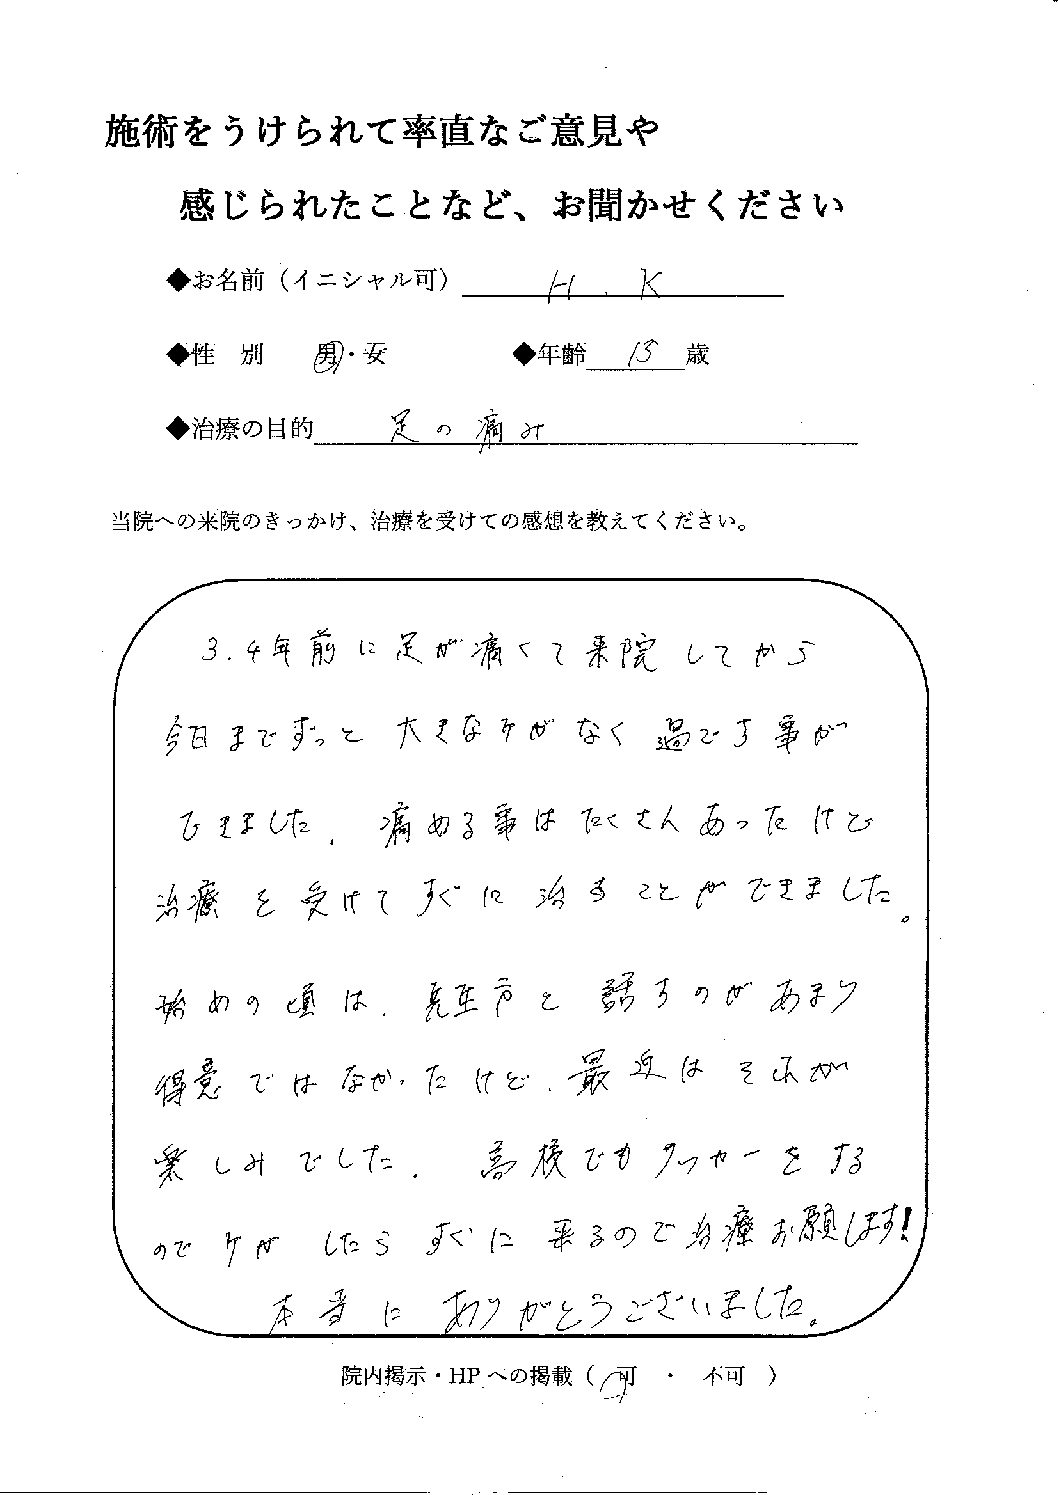 施術をうけられて率直なご意見や
感じられたことなど、お聞かせください
◆お名前（イニシャル可） H.K
◆性 別 男・女 ◆年齢 15 歳
◆治療の目的 足の痛み
当院への来院のきっかけ、治療を受けての感想を教えてください。
3.4年前に足が痛くて来院してから
今日まですっと大きなケガがなく過ごす事が
できました. 痛める事はたくさんあったけど
治療を受けてすぐに治すことができました。
始めの頃は、先生方と話すのがあまり
得意ではなかったけど、最近はそれが
楽しみでした. 高校でもサッカーをする
のでケガしたらすぐに来るので治療お願します!
本当にありがとうございました。
院内掲示・HPへの掲載（ 可 ・ 不可 ）